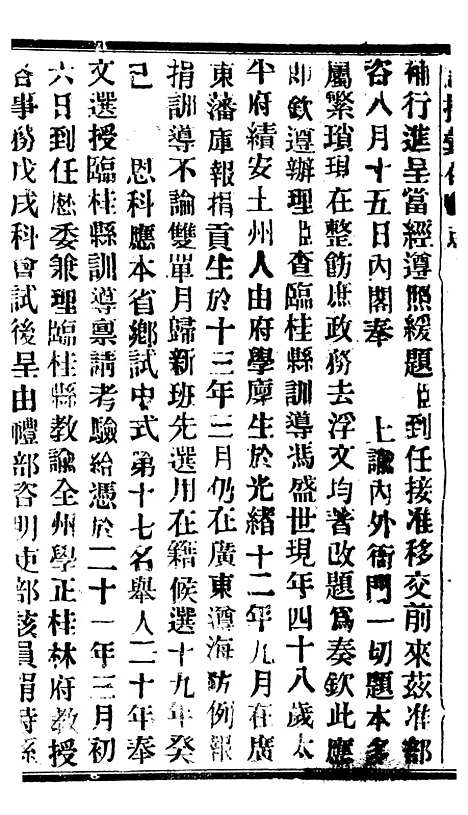 補行進呈當經遵照緩題臣到任接准移交前來茲准部
咨八月十五日內閣奉　上諭內外衙門一切題本多
屬繁瑣現在整飭庶政務去浮文均著改題爲奏欽此應
即欽遵辦理臣查臨桂縣訓導馮盛世現年四十八歲太
平府續安土州人由府學廩生於光緒十二年九月在廣
東藩庫報捐貢生於十三年三月仍在廣東遵海防例報
捐訓導不論雙單月歸新班先選用在籍候選十九年癸
巳　恩科應本省鄉試中式第十七名舉人二十年奉
文選授臨桂縣訓導稟請考驗給憑於二十一年三月初
六日到任歷委兼理臨桂縣教諭全州學正桂林府教授
各事務戊戌科會試後呈由禮部咨明吏部該員捐時係